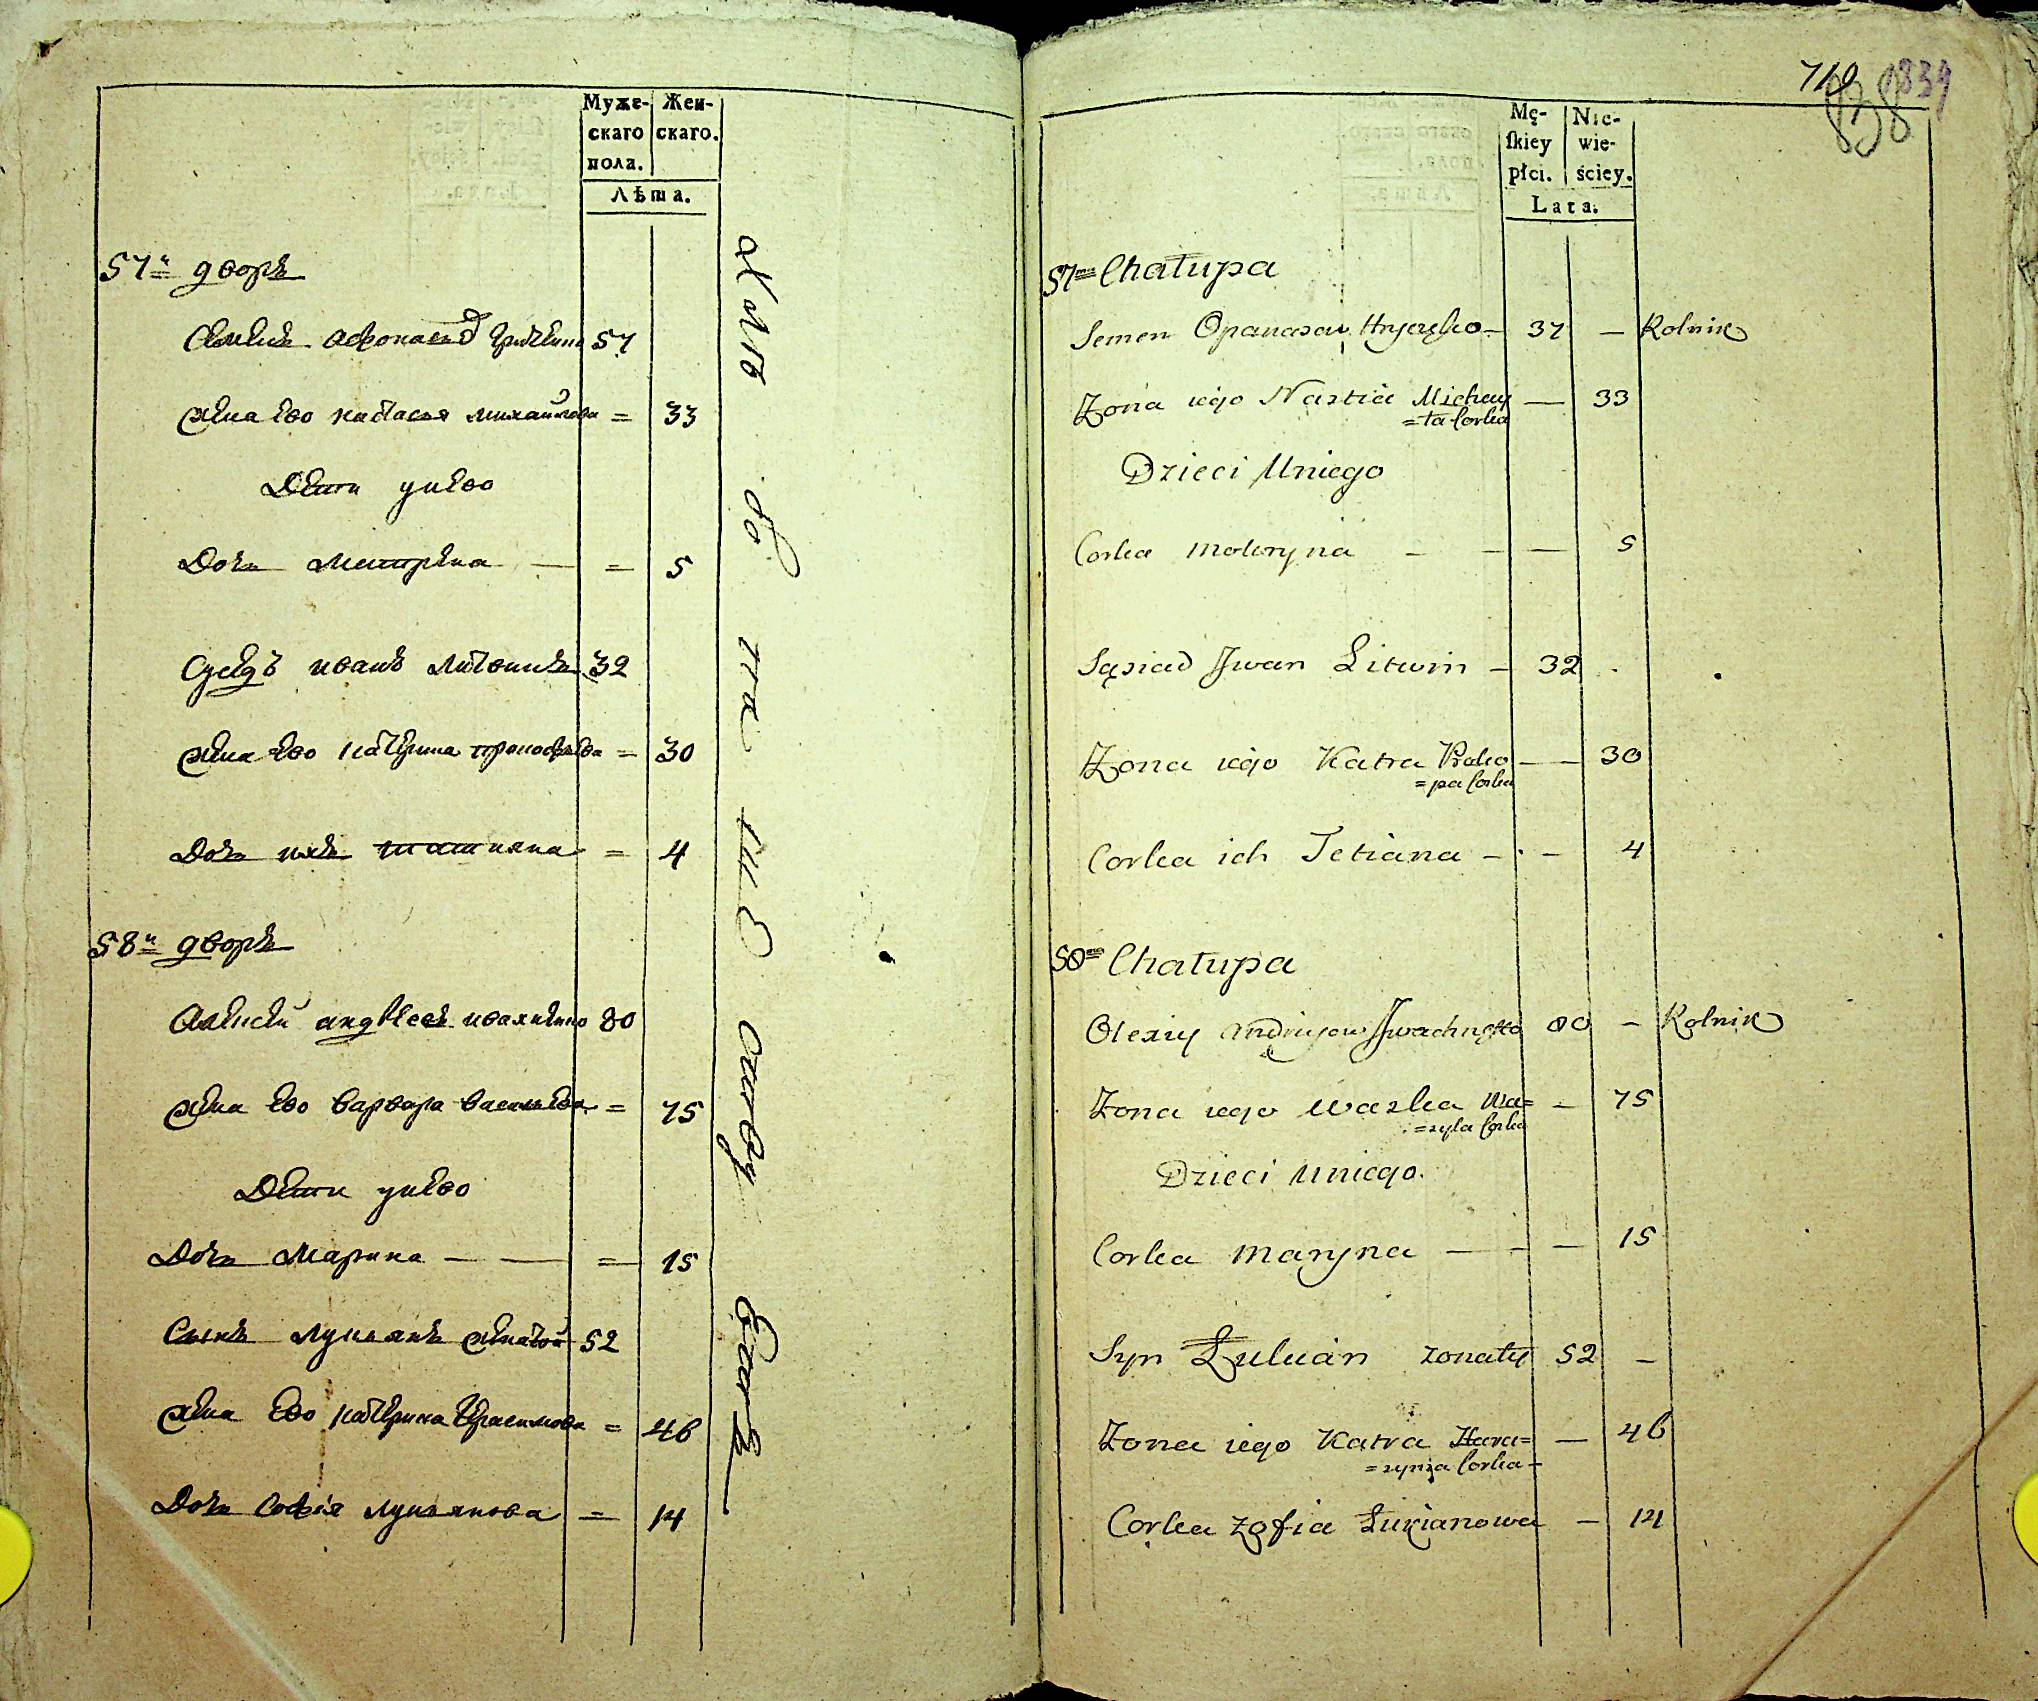 Муже-
скаго
пола.
Жен-
скаго.
Лѣта.
57й дворъ
Семенъ Афонасьевъ 57
жена ево настасья михайлова = 33
Дети унево
Дочь Матрена — = 5
Суседъ иванъ Литвинъ 32
жена ево катерина прокофьева = 30
Дочь ихъ татияна = 4
58й дворъ
Алексей андреевъ 80
жена ево варвара васильева = 75
Дети унево
Дочь Марина — — = 15
Сынъ лукьянъ женатой 52
жена ево катерина Герасимова = 46
Дочь Софія лукьянова = 14
710 838 839
Mę-
ſkiey
płci.
Nie-
wie-
ściey.
Lata.
57ma Chałupa
Semen Opanasow Hryczko — 37 — Rolnik
Zona iego Nastia Michay — 33
=ła Corka
Dzieci Uniego
Corka Motryna — — — 5
Sąsiad Jwan Litwin — 32
Zona iego Katra Proko — — 30
=pa Corka
Corka ich Tetiana — — 4
58ma Chałupa
Olexiy Andriyow 80 — Rolnik
Zona iego Waska Wa= — 75
=zyla Corka
Dzieci Uniego.
Corka Maryna — — — 15
Syn Łukian zonaty 52 —
Zona iego Katra Hara= — 46
=zyma Corka —
Corka Zofia Łukianowa — 14